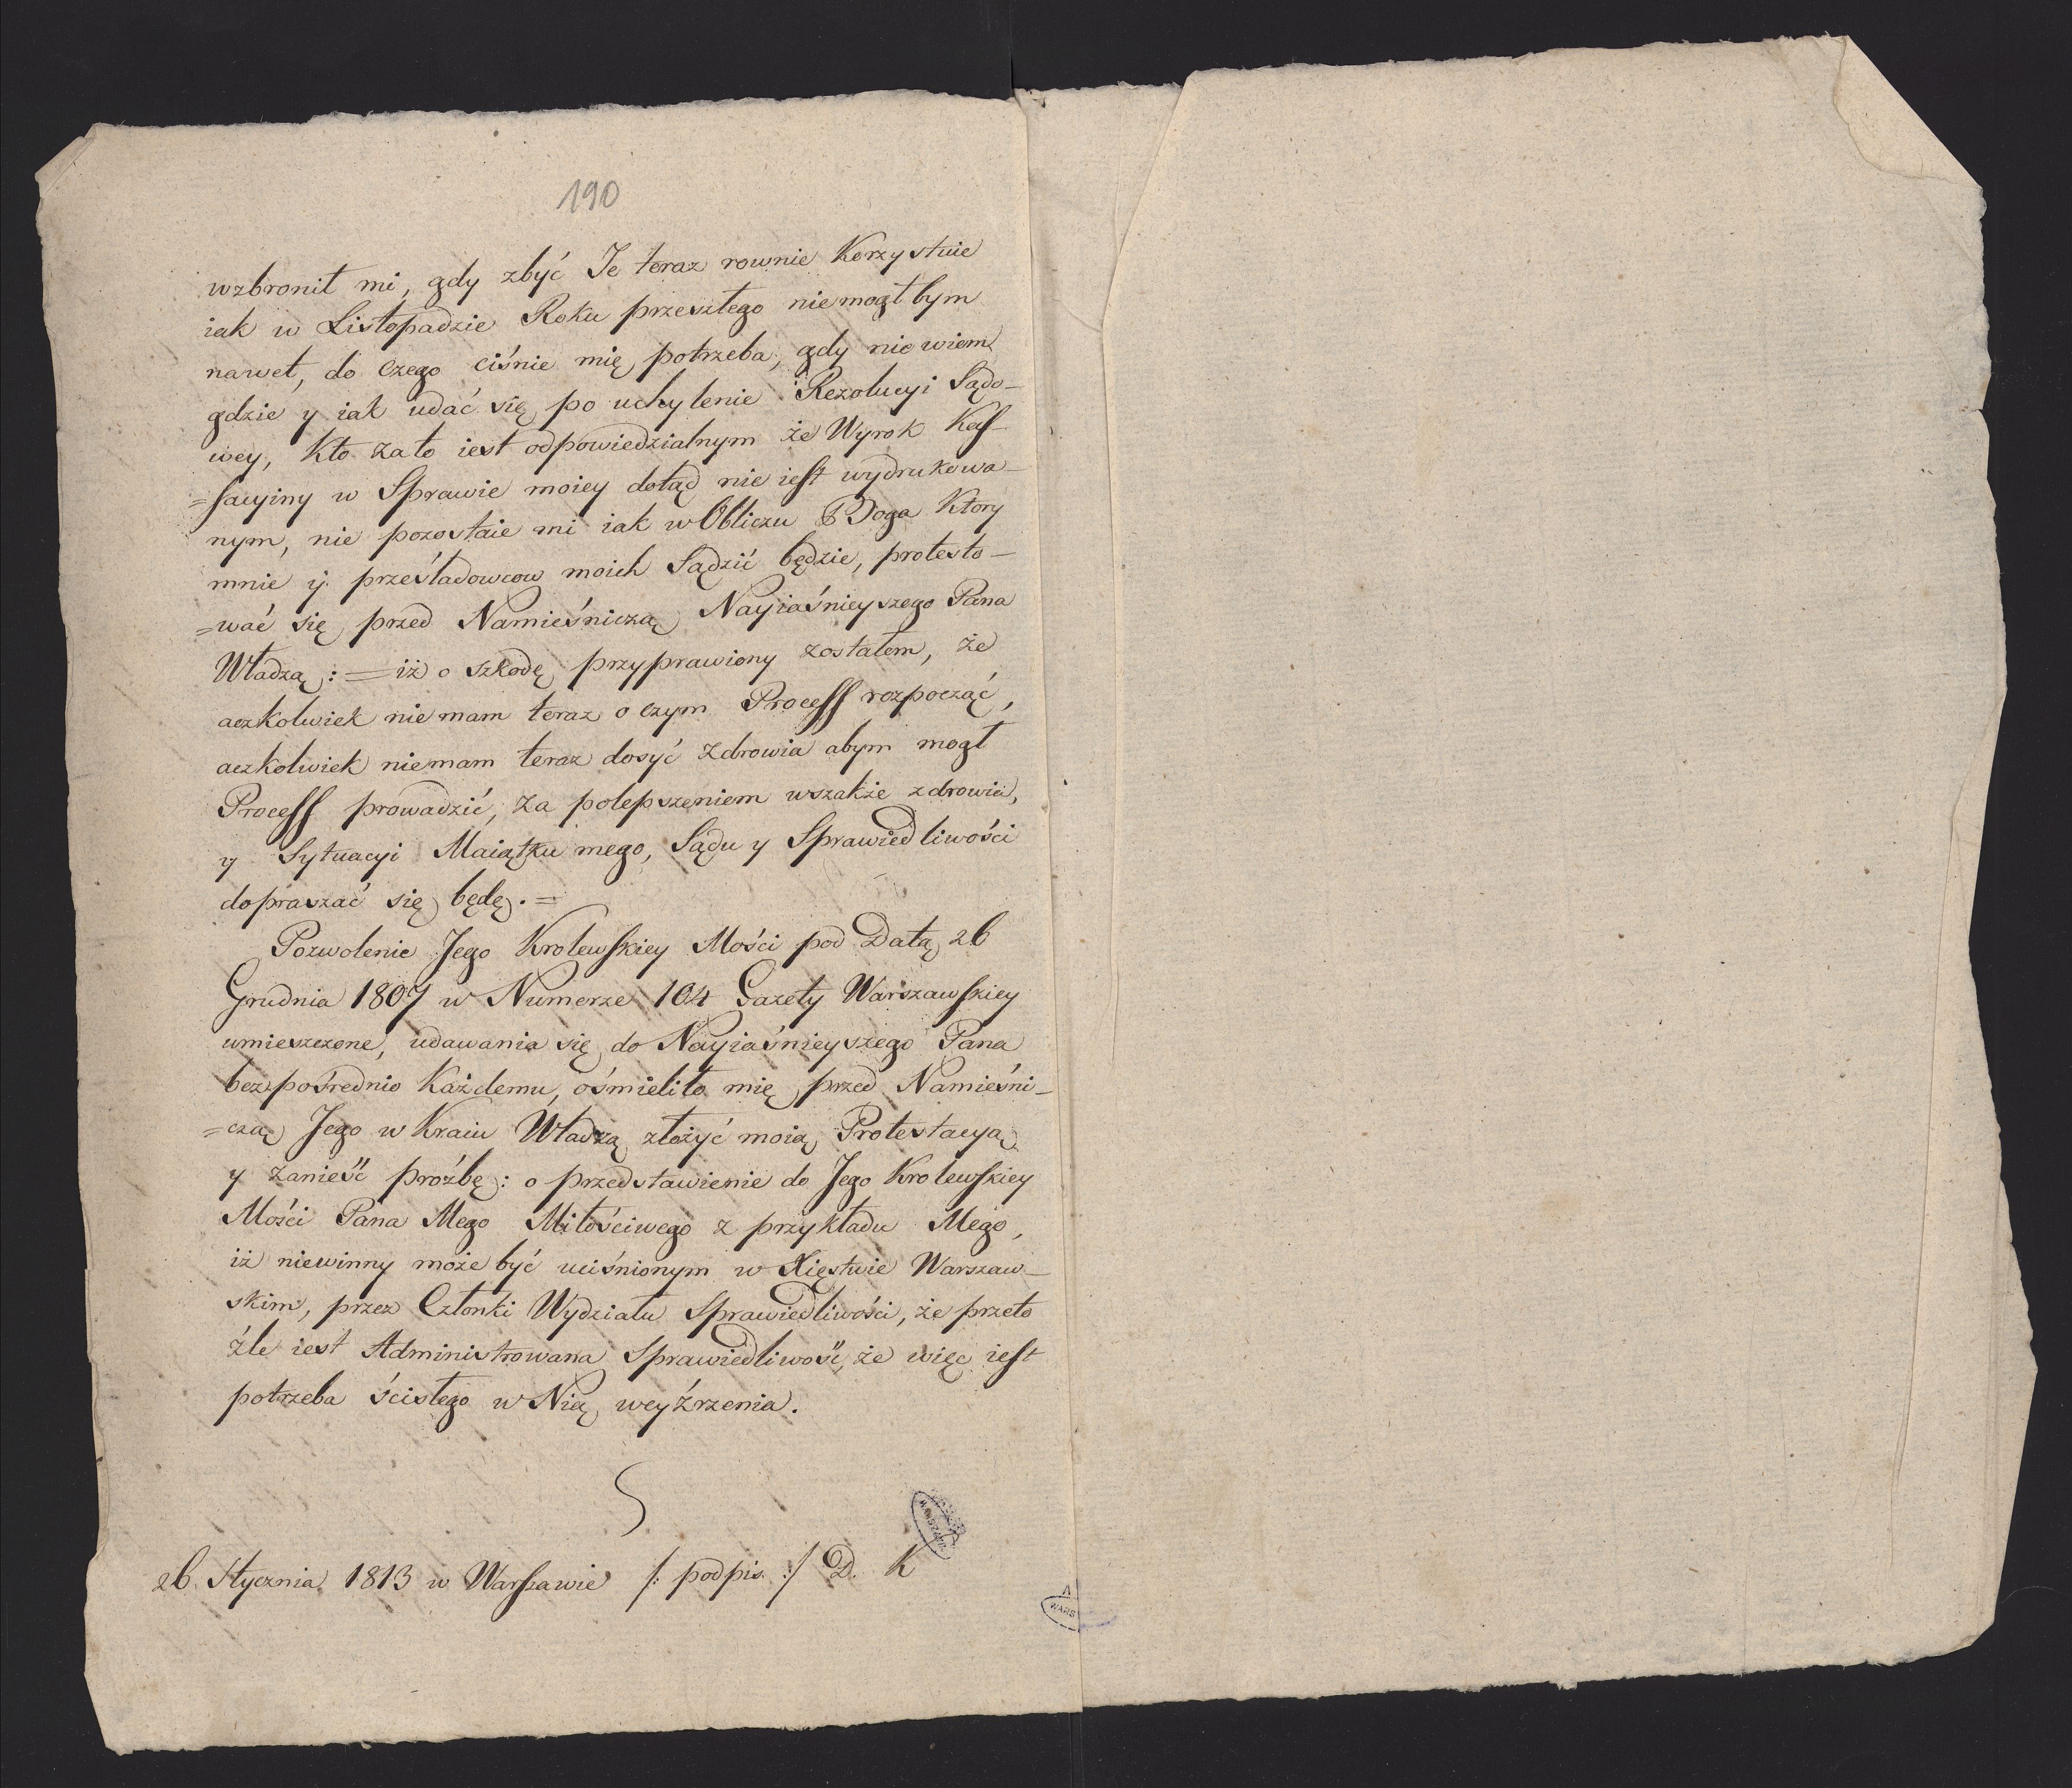 190
wzbronił mi, gdy zbyć Je teraz rownie Korzystnie
iak w Listopadzie Roku przeszłego niemogłbym
nawet, do czego ciśnie mię potrzeba, gdy niewiem
gdzie y iak udać się po uchylenie Rezolucyi Sądo-
wey, Kto zato iest odpowiedzialnym że Wyrok Kas-
=sacyiny w Sprawie moiey dotąd nie iest wydrukowa-
nym, nie pozostaie mi iak w Obliczu Boga Ktory
mnie y prześladowcow moich Sądzić będzie, protesto-
=wać się przed Namieśniczą Nayiaśnieyszego Pana
Władzą: = iż o szkodę przyprawiony zostałem, że
aczkolwiek niemam teraz o czym Process rozpocząć,
aczkolwiek niemam teraz dosyć zdrowia abym mogł
Process prowadzić, za polepszeniem wszakże zdrowia,
y Sytuacyi Maiątku mego, Sądu y Sprawiedliwości
dopraszać się będę. =
Pozwolenie Jego Krolewskiey Mości pod Datą 26
Grudnia 1807 w Numerze 104 Gazety Warszawskiey
umieszczone, udawania się do Nayiaśnieyszego Pana
bezpośrednio Każdemu, ośmieliło mię przed Namieśni-
=czą Jego w Kraiu Władzą złożyć moią Protestacyą
y zanieść próźbę: o przedstawienie do Jego Krolewskiey
Mości Pana Mego Miłościwego z przykładu Mego,
iż niewinny może być uciśnionym w Xięstwie Warszaw-
skim, przez Członki Wydziału Sprawiedliwości, że przeto
źle iest Administrowana Sprawiedliwość, że więc iest
potrzeba ścisłego w Nią weyźrzenia.
26 Stycznia 1813 w Warszawie /: podpis. :/ D. K
WARS